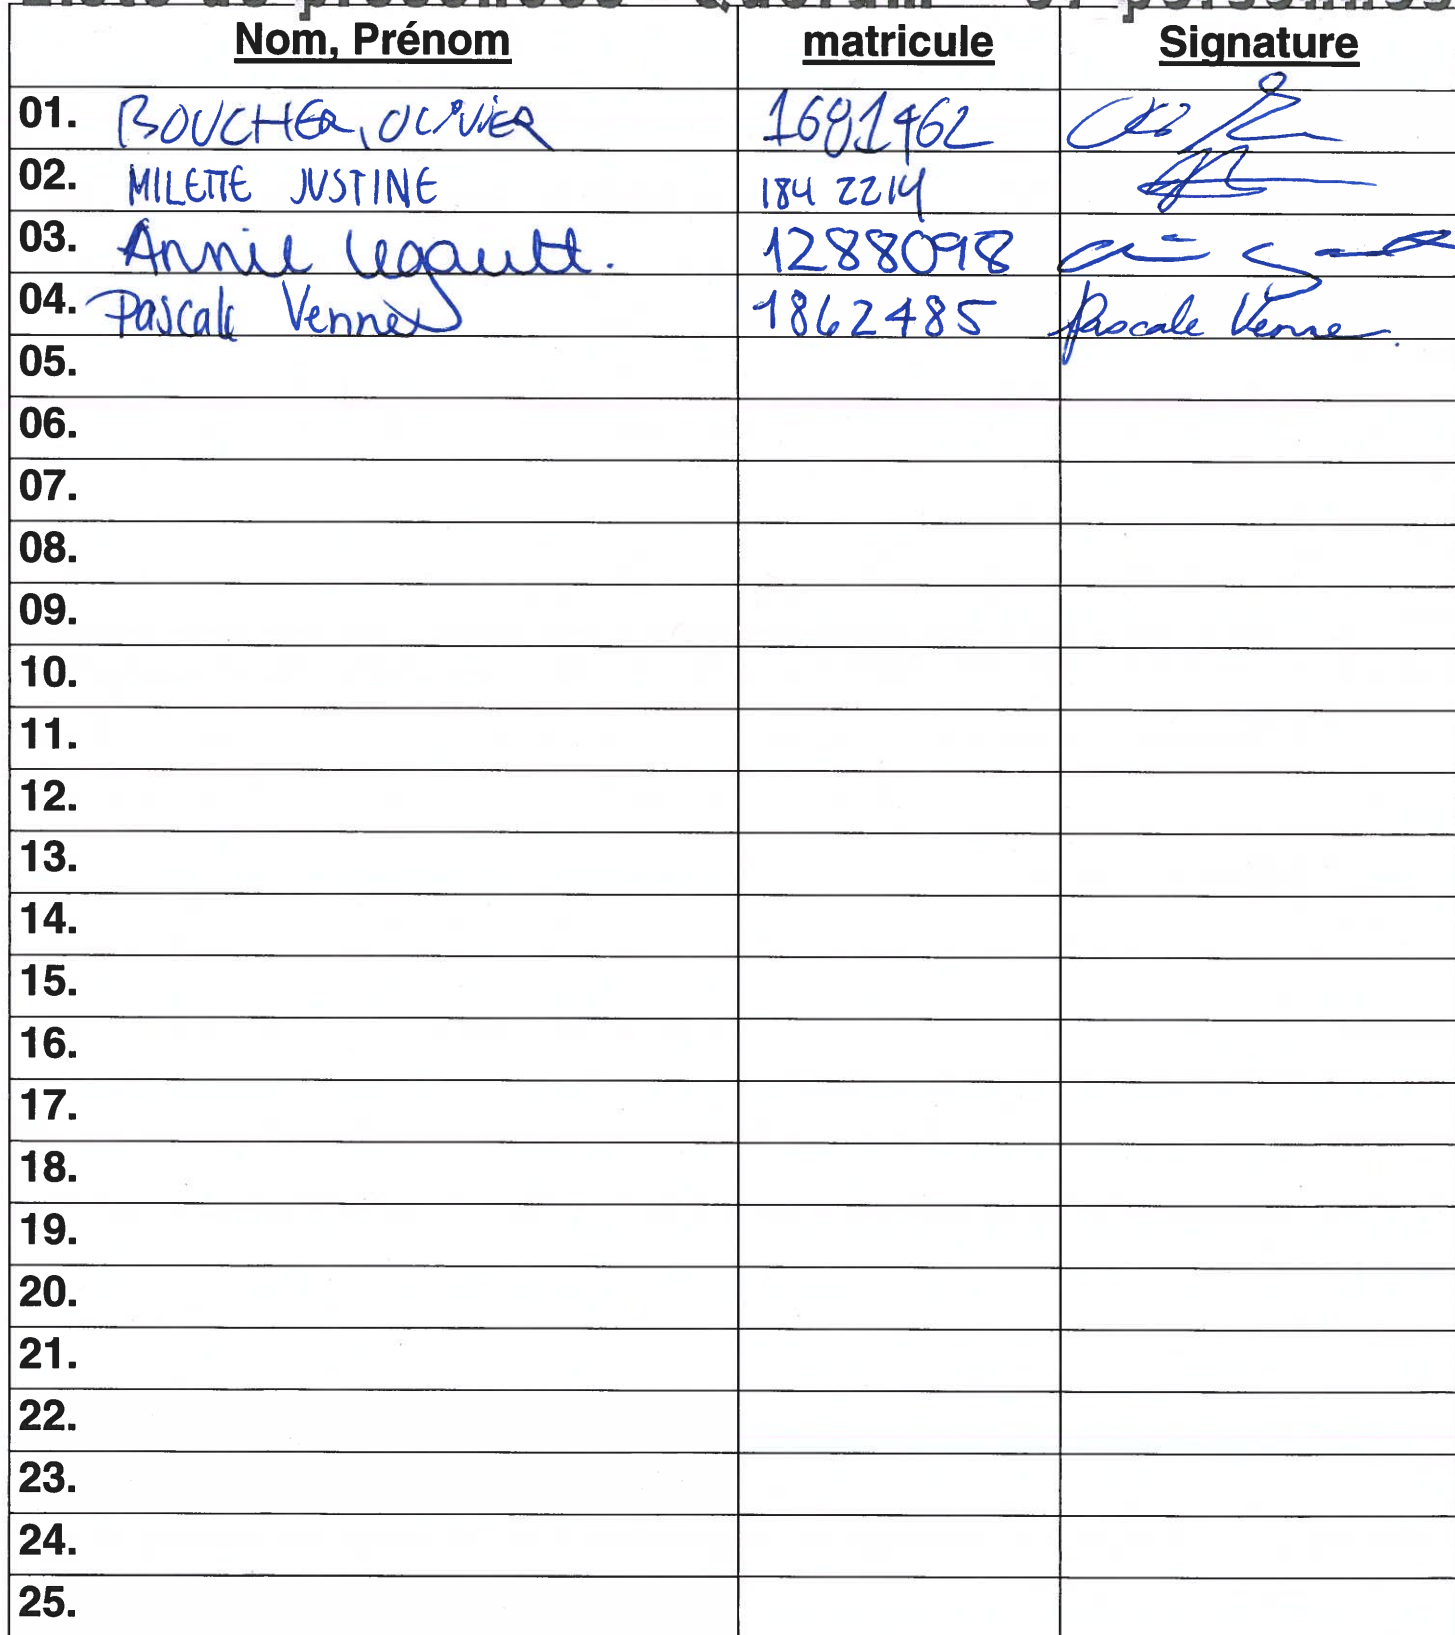 Liste de présences Quorum personnes
Nom, Prénom matricule Signature
01. BOUCHER, OLIVIER 1681462
02. MILETTE JUSTINE 184 2214
03. Annie Legault. 1288098
04. Pascale Venne 1862485 Pascale Venne.
05.
06.
07.
08.
09.
10.
11.
12.
13.
14.
15.
16.
17.
18.
19.
20.
21.
22.
23.
24.
25.